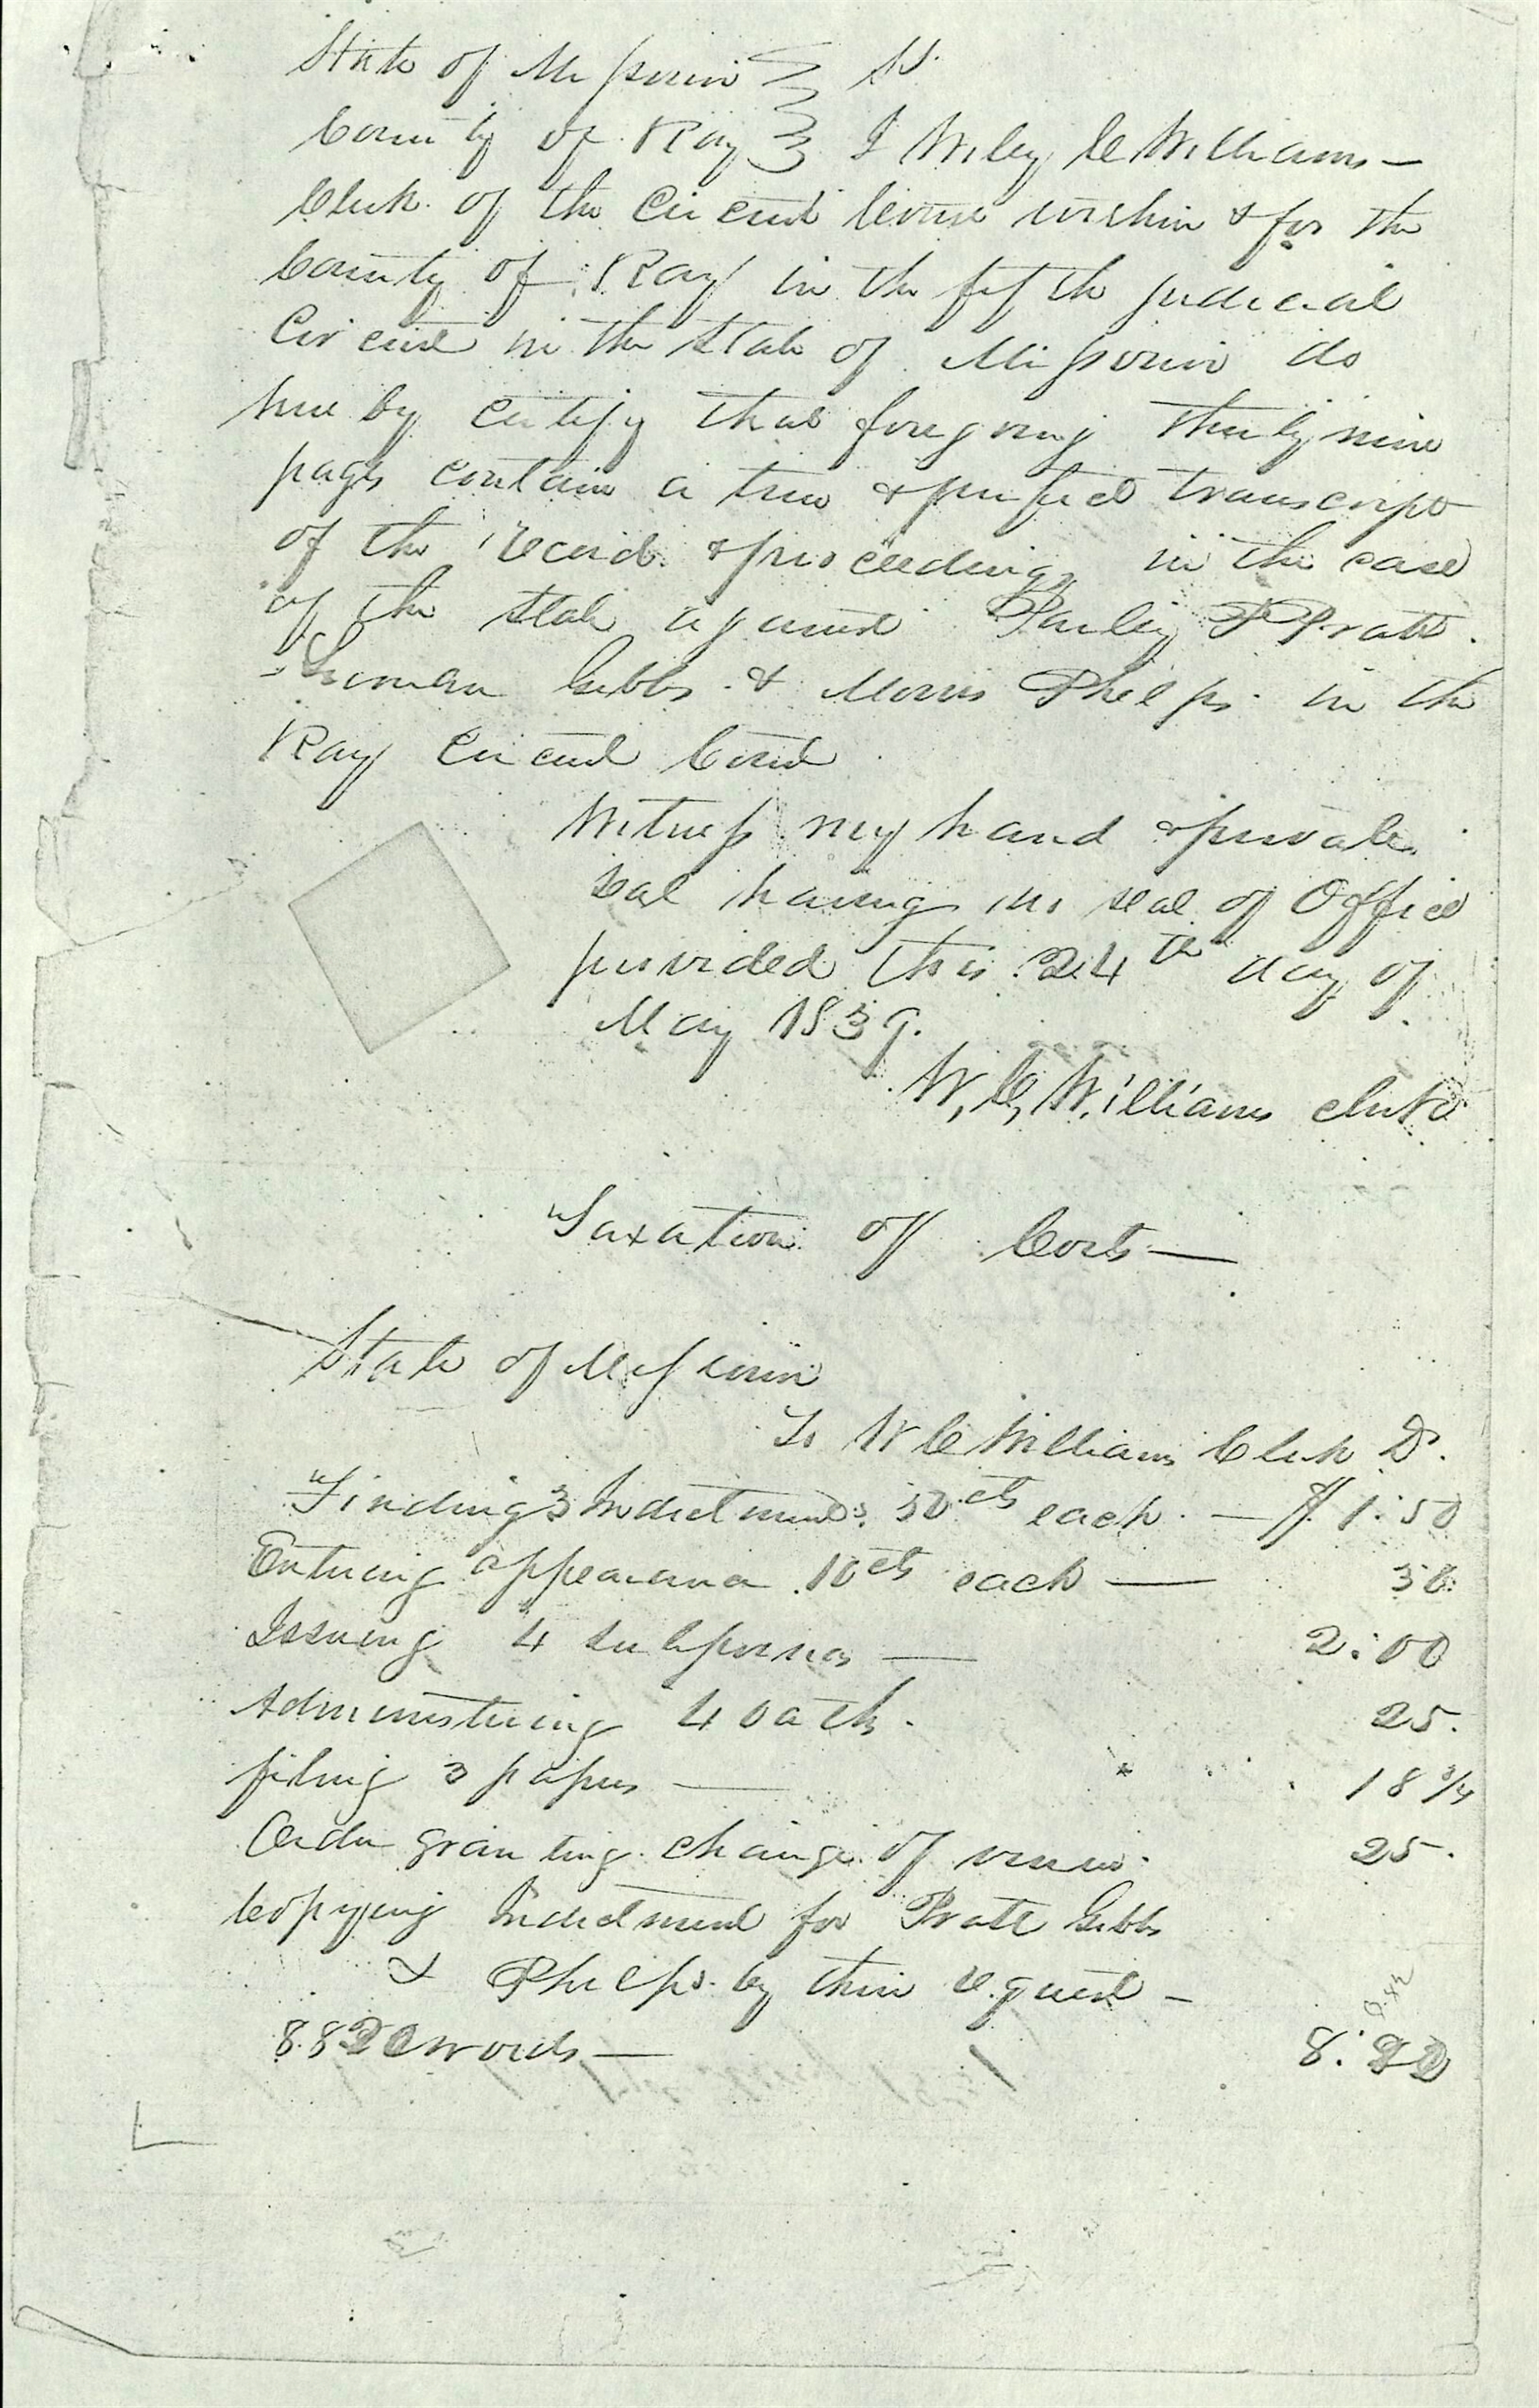 State of Missouri } SS.
County of Ray } I Wiley C Williams —
Clerk of the Circuit Court within & for the
County of Ray in the fifth judicial
Circuit in the State of Missouri do
hereby certify that foregoing thirty nine
pages contain a true & perfect transcript
of the record & proceedings in the case
of the State against Parley P Pratt.
Luman Gibbs & Morris Phelps in the
Ray Circuit Court
Witness my hand & private
seal having no seal of Office
provided this 24th day of
May 1839.
W, C, Williams Clerk
Taxation of Costs —
State of Missouri
To W C Williams Clerk Dr.
Finding 3 Indictments 50 cts each — $ 1:50
Entering appearance 10 cts each — 30
Issuing 4 subpoenas — 2:00
Administering 4 oaths. 25.
filing 3 papers — 18 3/4
Order granting change of venue. 25.
Copying Indictment for Pratt Gibbs
& Phelps by their request —
8820 words — 8.